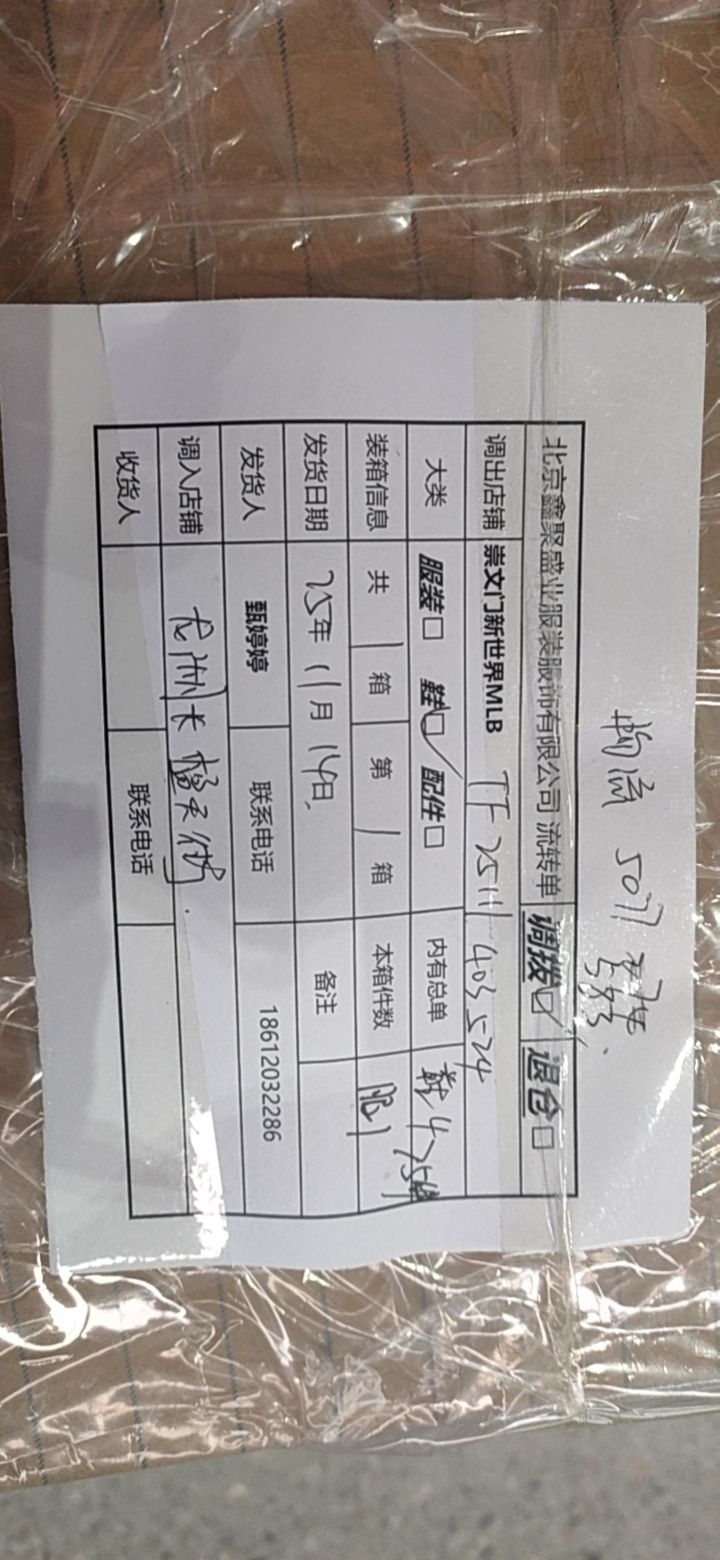 物流 5077
583
北京鑫聚盛业服装服饰有限公司 流转单 调拨☑ 退仓□
调出店铺 崇文门新世界MLB TF2511403524
大类 服装□ 鞋☑ 配件□ 内有总单
装箱信息 共 1 箱 第 1 箱 本箱件数 服1
发货日期 25年 11月 14日 备注
发货人 甄婷婷 联系电话 18612032286
调入店铺 龙湖长楹天街
收货人 联系电话